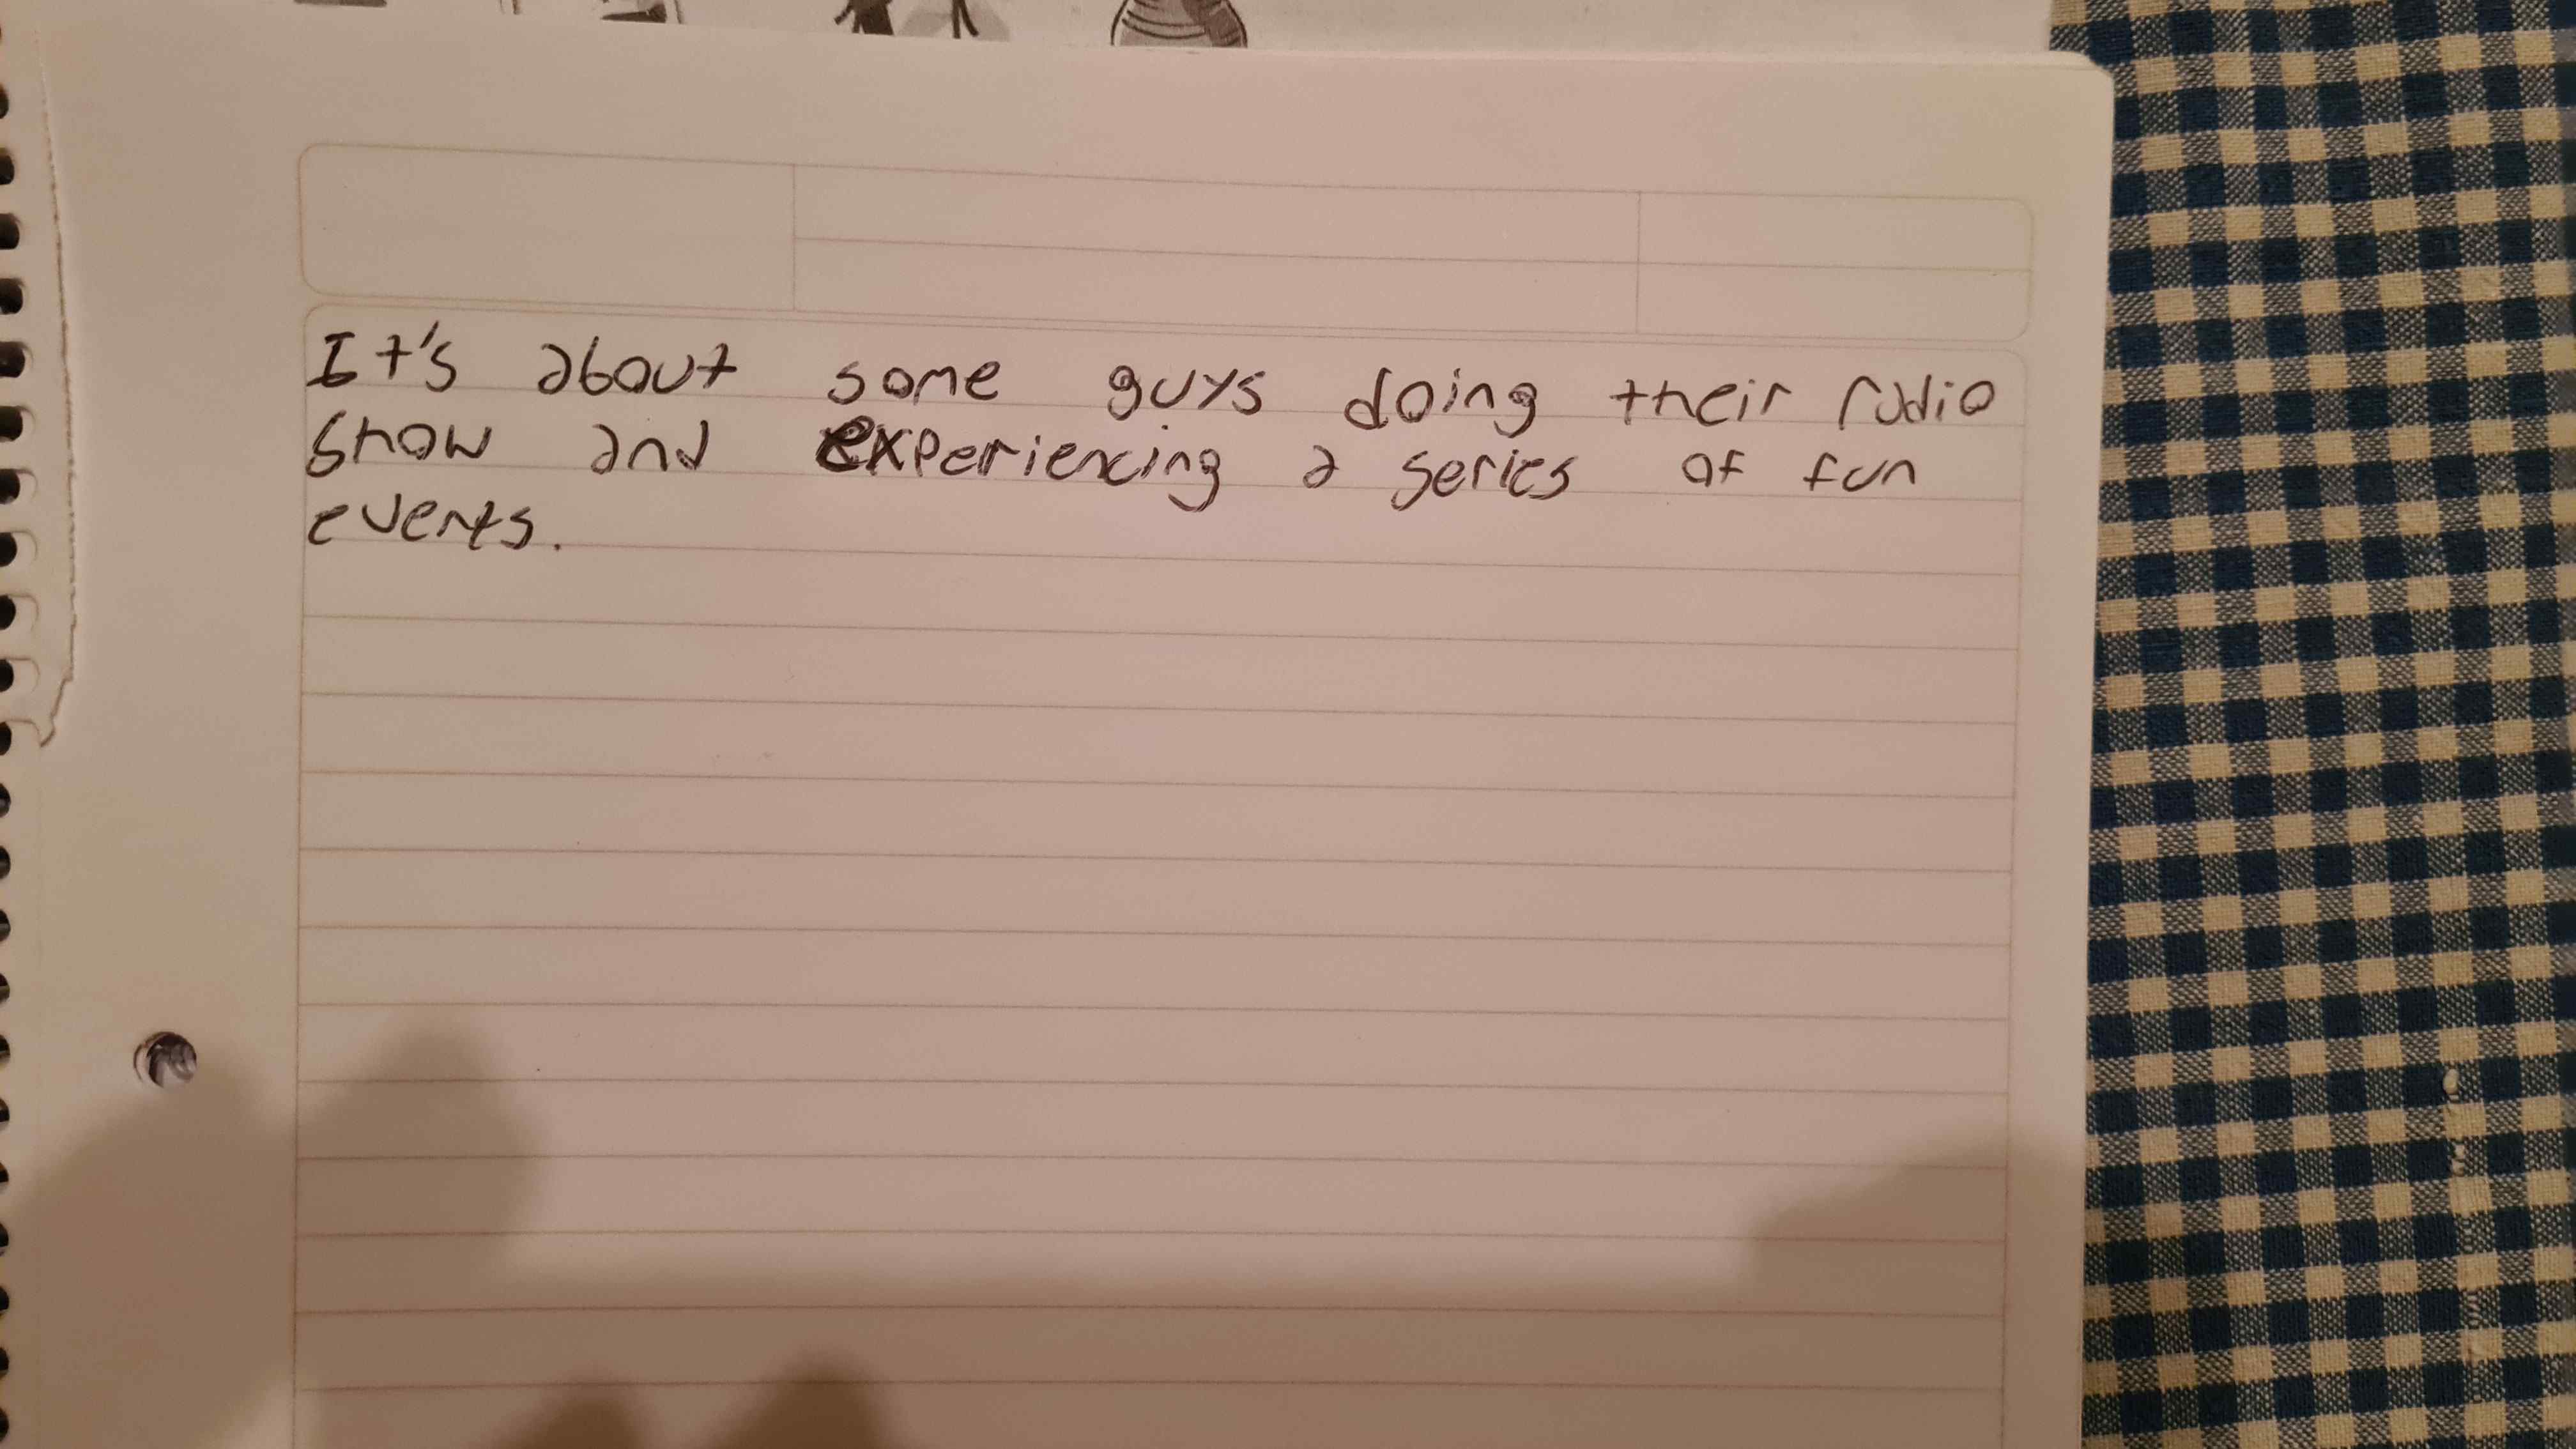 It's about some guys doing their radio
show and experiencing a series of fun
events.